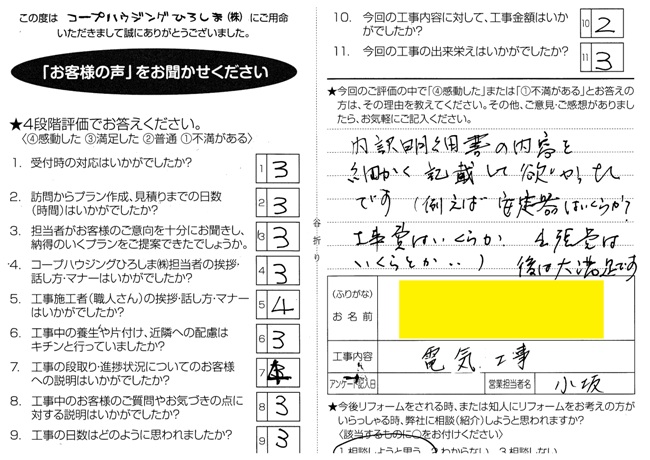 この度は コープハウジングひろしま(株) にご用命
いただきまして誠にありがとうございました。
「お客様の声」をお聞かせください
★4段階評価でお答えください。
〈④感動した ③満足した ②普通 ①不満がある〉
1. 受付時の対応はいかがでしたか?
1 3
2. 訪問からプラン作成、見積りまでの日数
(時間)はいかがでしたか?
2 3
3. 担当者がお客様のご意向を十分にお聞きし、
納得のいくプランをご提案できたでしょうか。
3 3
4. コープハウジングひろしま㈱担当者の挨拶・
話し方・マナーはいかがでしたか?
4 3
5. 工事施工者(職人さん)の挨拶・話し方・マナー
はいかがでしたか?
5 4
6. 工事中の養生や片付け、近隣への配慮は
キチンと行っていましたか?
6 3
7. 工事の段取り・進捗状況についてのお客様
への説明はいかがでしたか?
7
8. 工事中のお客様のご質問やお気づきの点に
対する説明はいかがでしたか?
8 3
9. 工事の日数はどのように思われましたか?
9 3
谷折り
10. 今回の工事内容に対して、工事金額はいか
がでしたか?
10 2
11. 今回の工事の出来栄えはいかがでしたか?
11 3
★今回のご評価の中で「④感動した」または「①不満がある」とお答え
の方は、その理由を教えてください。その他、ご意見・ご感想がありました
ら、お気軽にご記入ください。
内訳明細書の内容を
細かく記載して欲しかった
です(例えば 安定器はいくらか?
工事費はいくらか 出張費は
いくらとか‥) 後は大満足です
(ふりがな)
お名前
工事内容 電気工事
アンケート記入日
営業担当者名 小坂
★今後リフォームをされる時、または知人にリフォームをお考えの方が
いらっしゃる時、弊社に相談(紹介)しようと思われますか?
〈該当するものに○をお付けください〉
1.相談しようと思う 2.わからない 3.相談しない